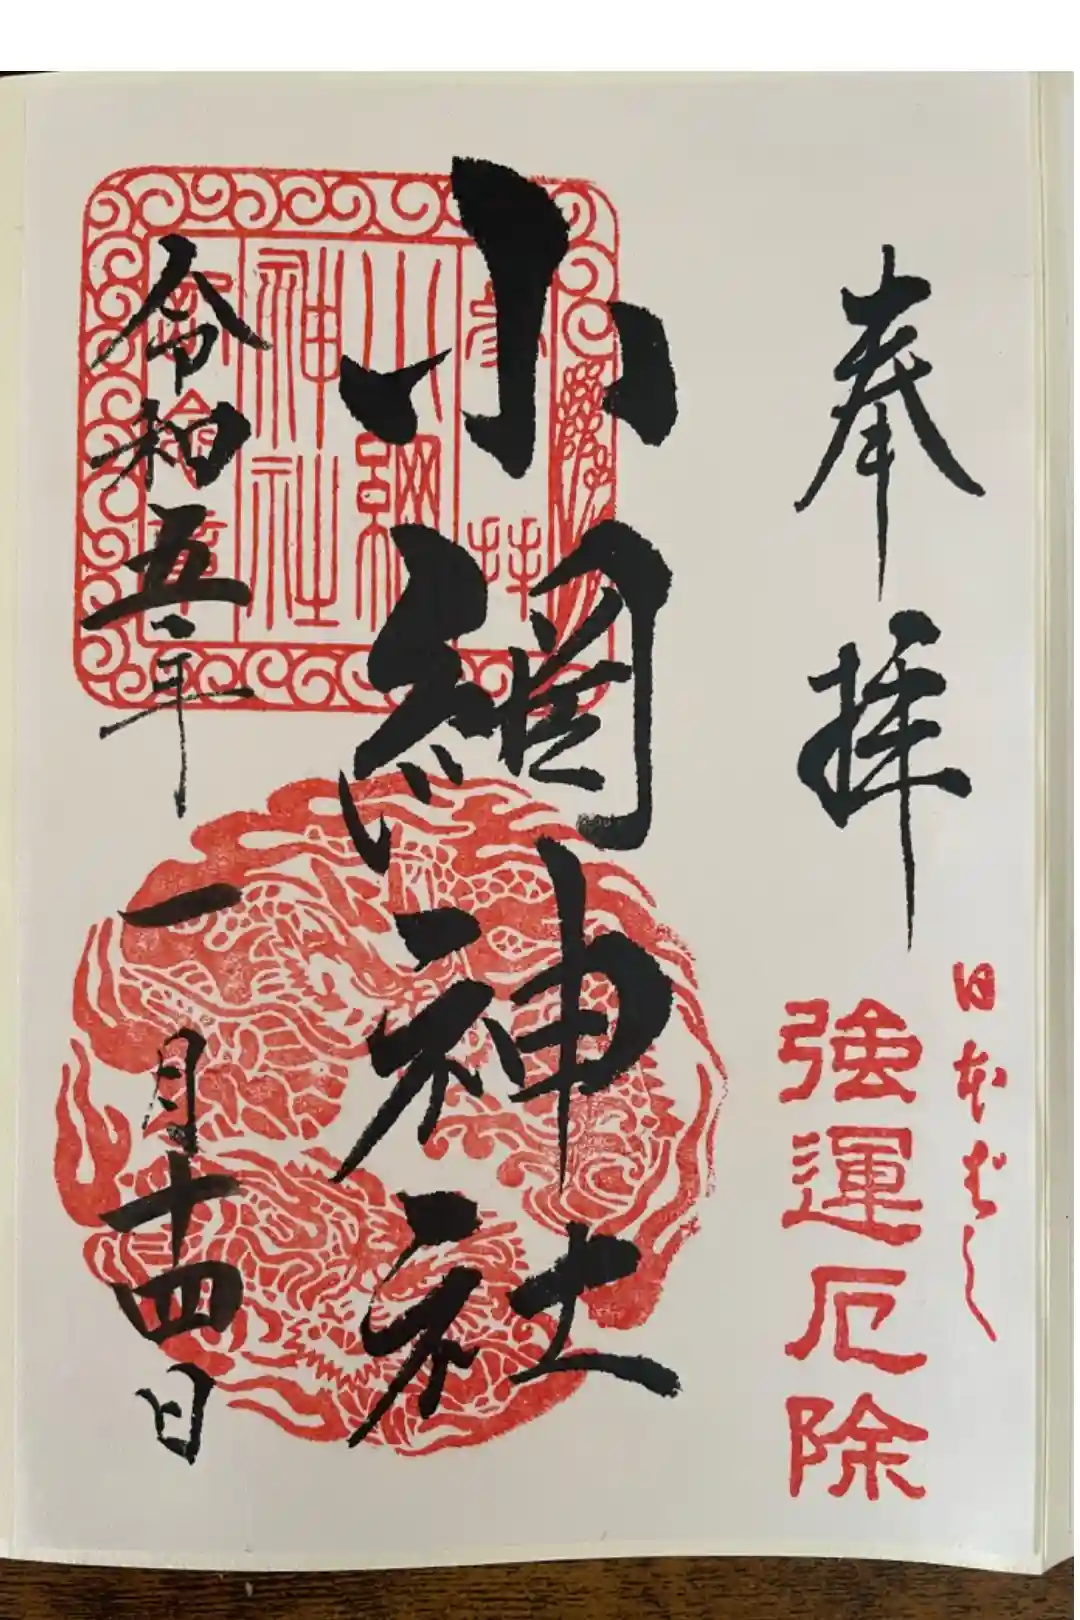 奉拝
日本ばし
強運厄除
小網神社
小網神社
令和五年一月十四日